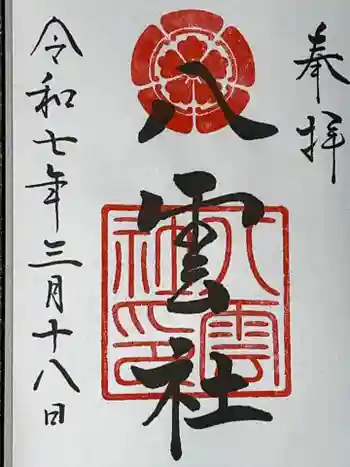 奉拝
八雲社
八雲
神印
令和七年三月十八日